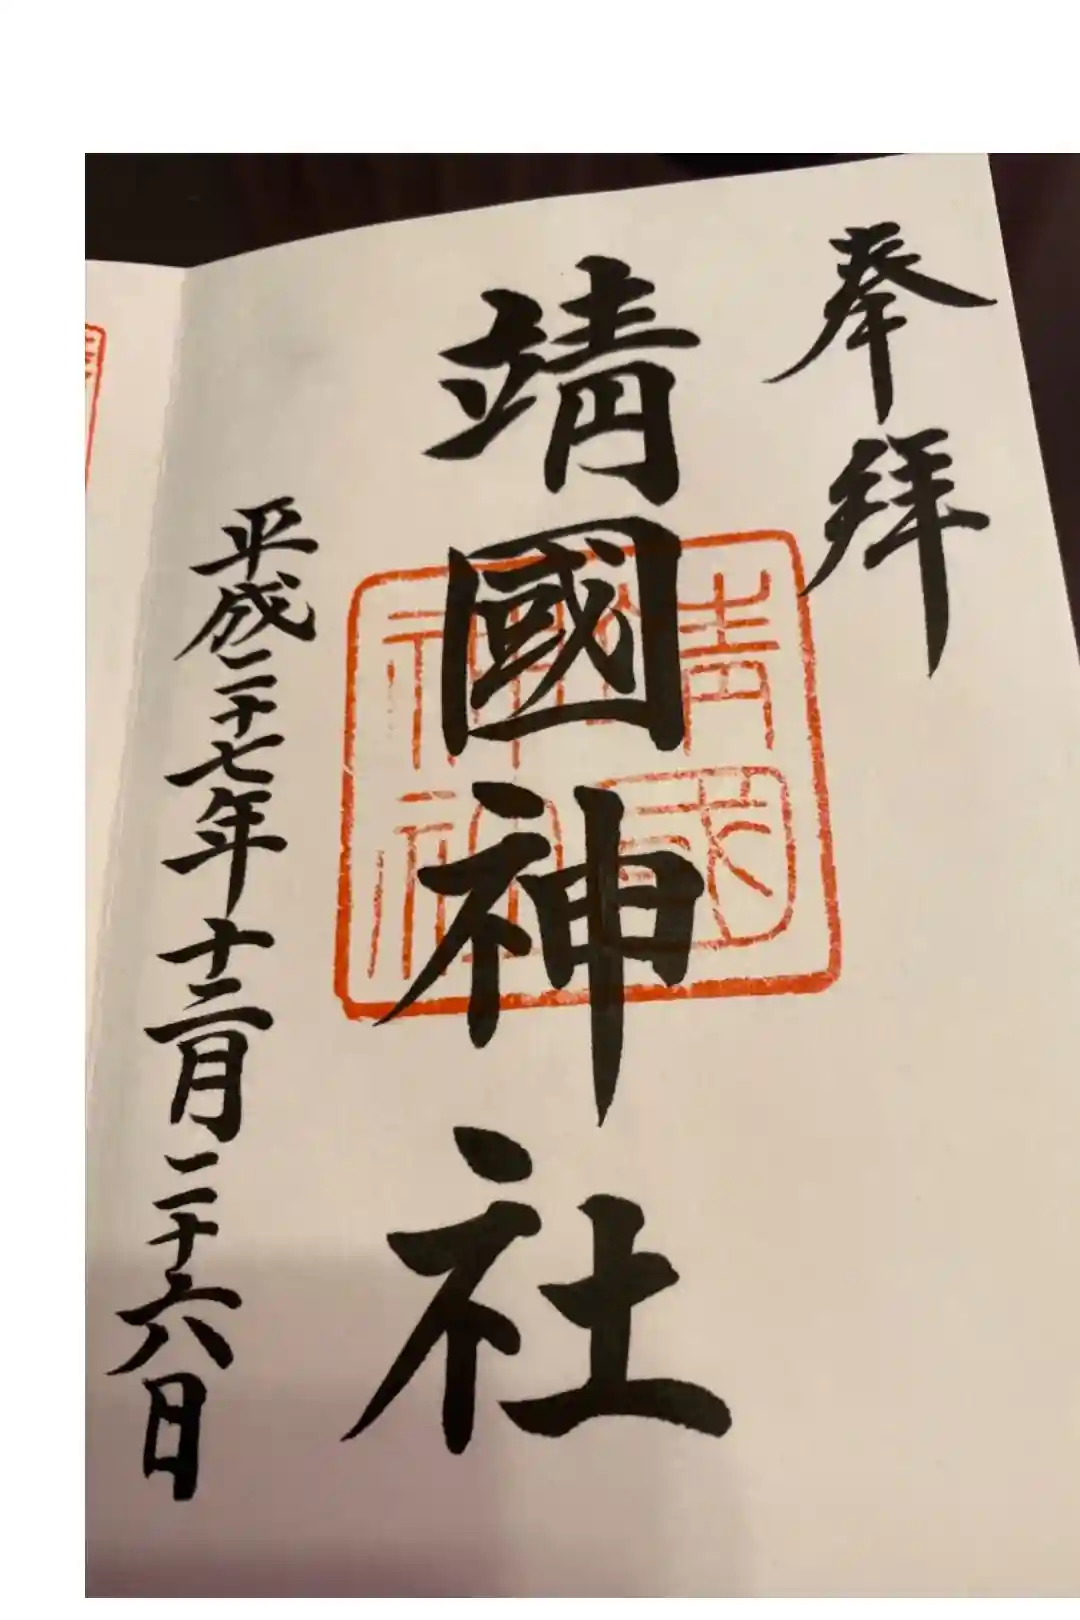 奉拜
靖國神社
靖國
神社
平成二十七年十二月二十六日